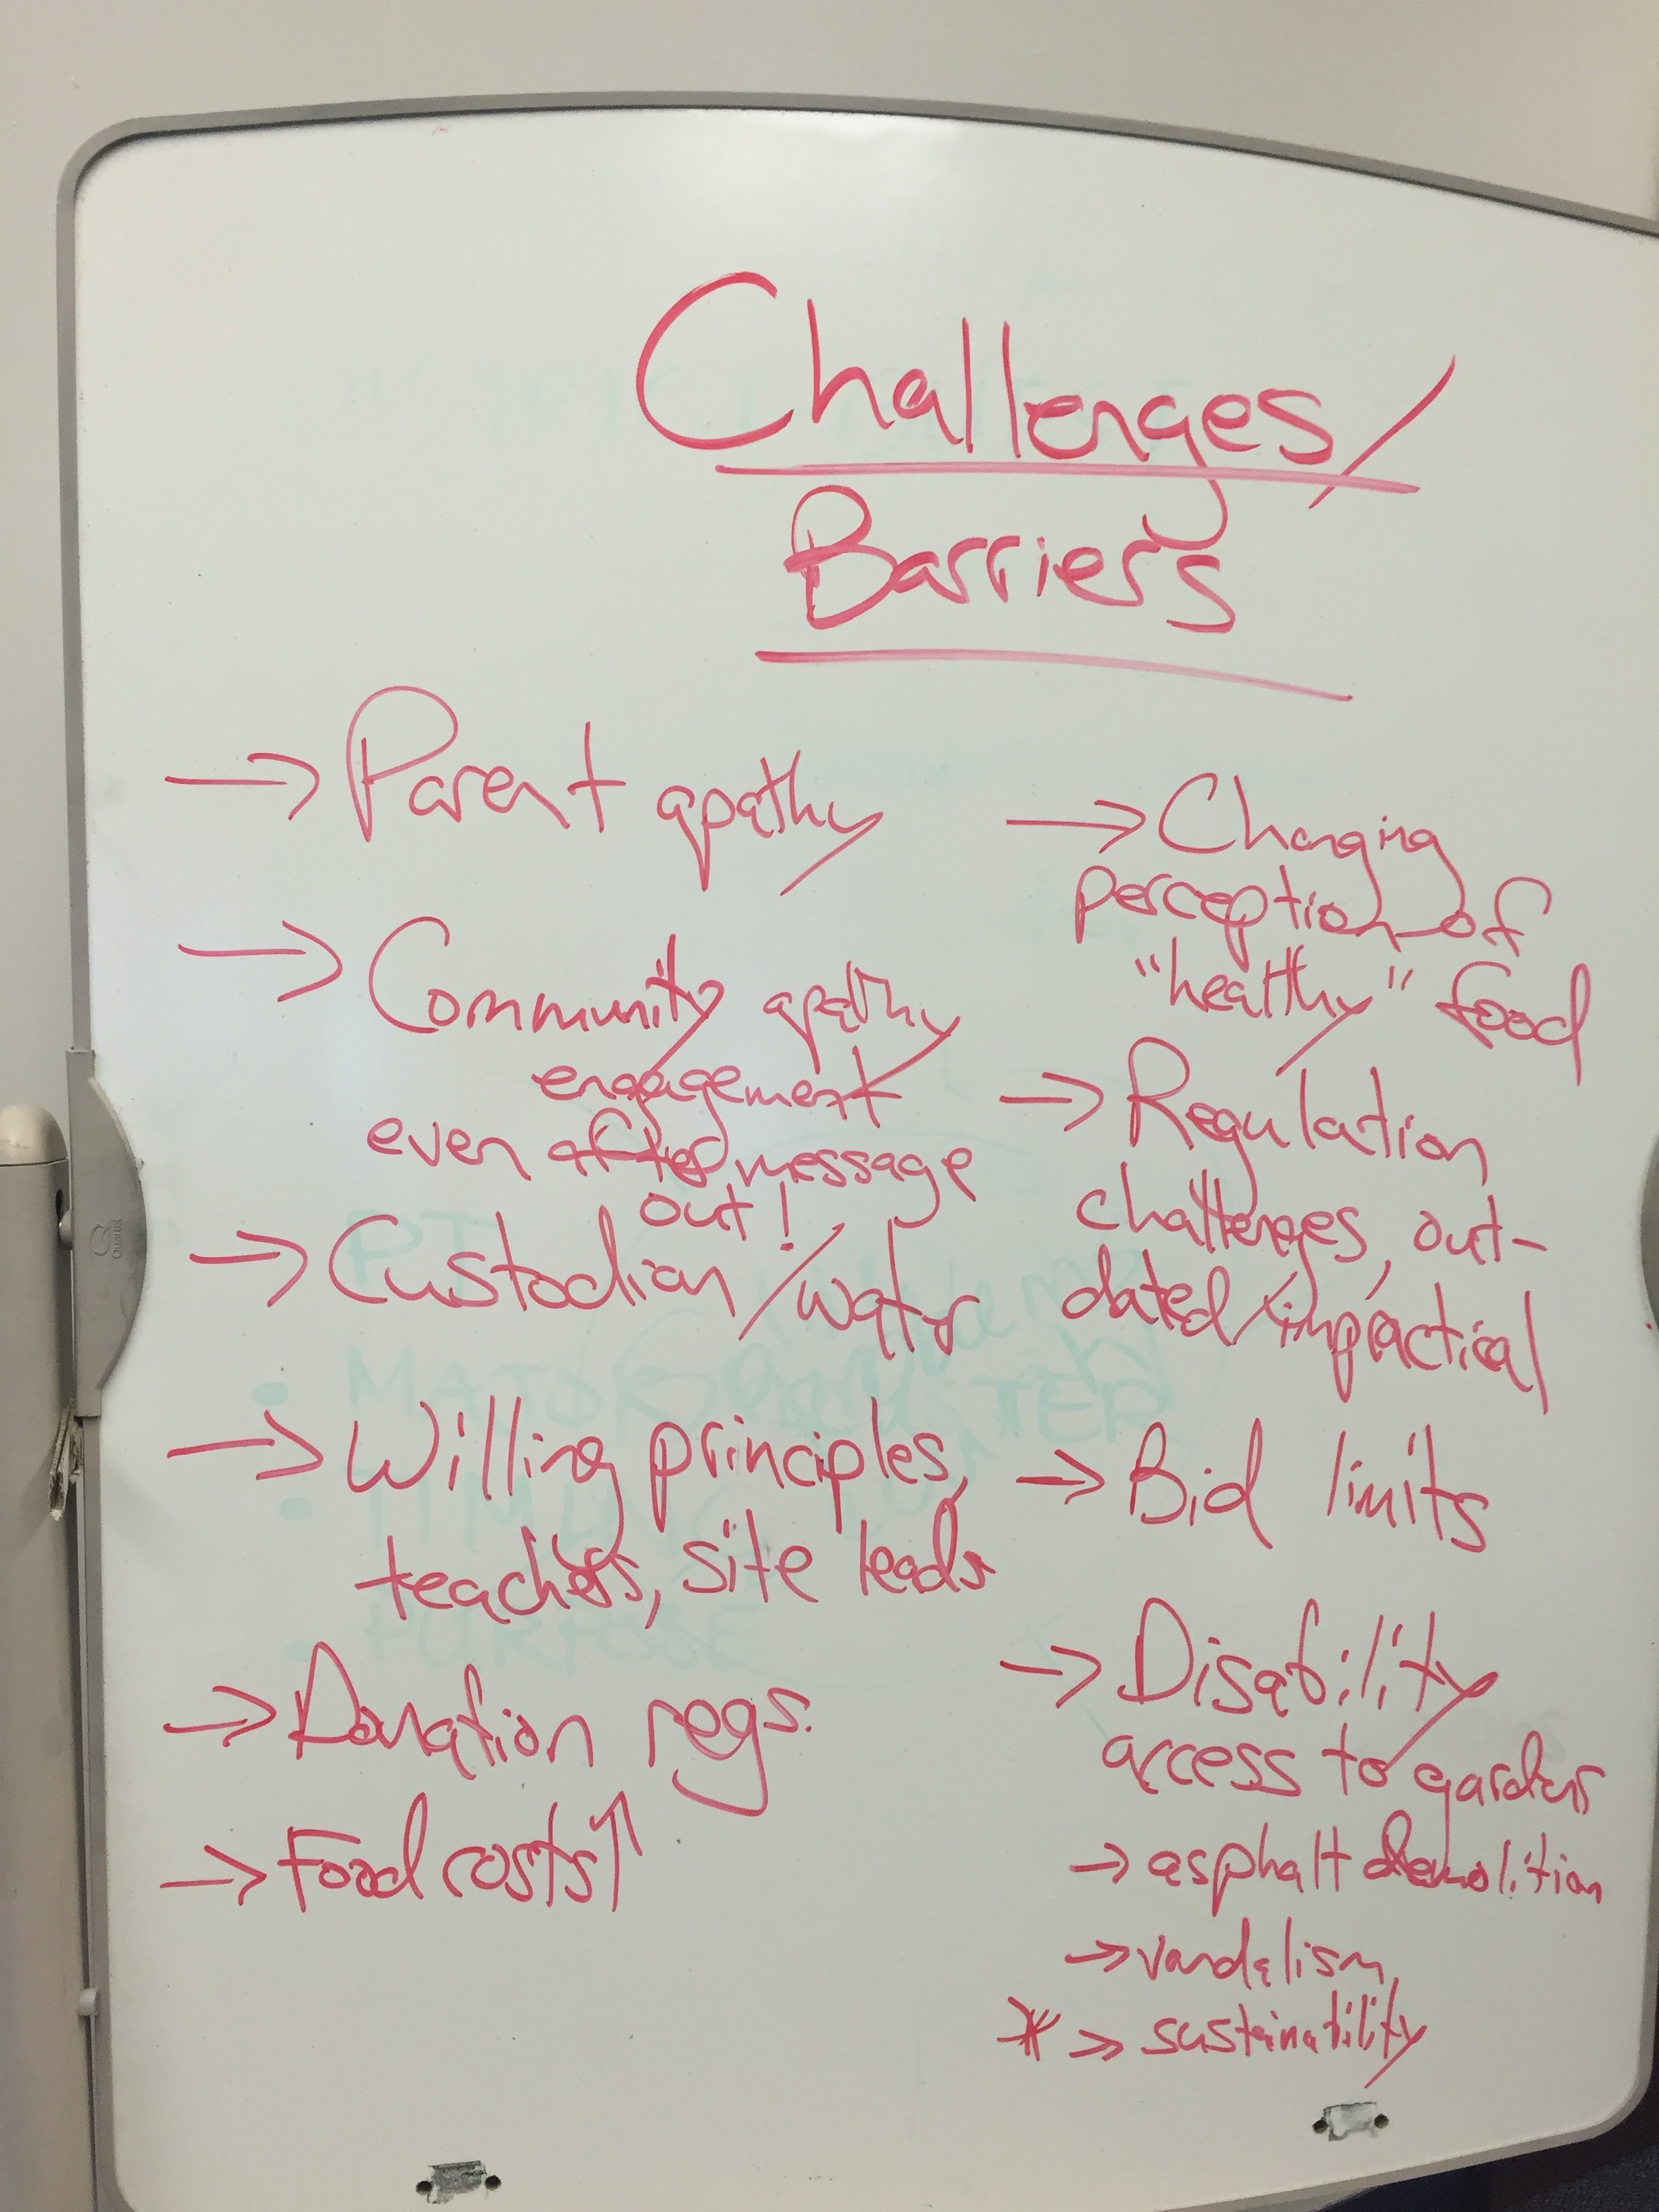 Challenges/
Barriers
→ Parent apathy
→ Community apathy
engagement
even after message
out!
→ Custodian/water
→ Willing principles,
teachers, site leads
→ Donation regs.
→ Food costs↑
→ Changing
perception of
"healthy" food
→ Regulation
challenges, out-
dated/impractical
→ Bid limits
→ Disability
access to gardens
→ asphalt demolition
→ vandalism
* → sustainability
Quartet
MAJOR
PURPOSE